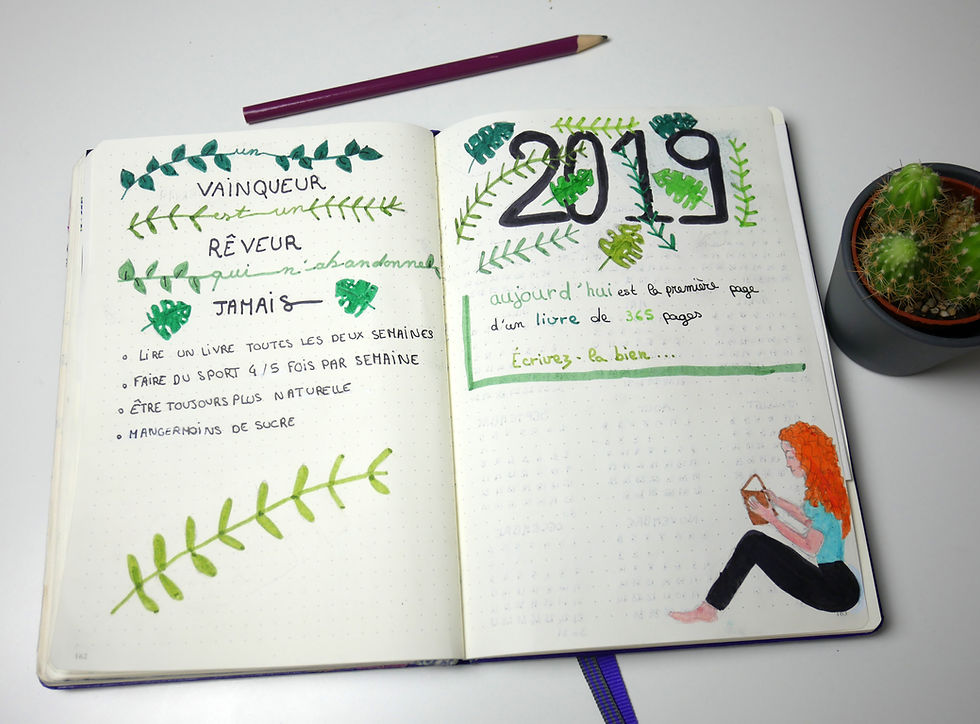 un
VAINQUEUR
est un
RÊVEUR
qui n'abandonne
JAMAIS
• LIRE UN LIVRE TOUTES LES DEUX SEMAINES
• FAIRE DU SPORT 4/5 FOIS PAR SEMAINE
• ÊTRE TOUJOURS PLUS NATURELLE
• MANGER MOINS DE SUCRE
162
2019
aujourd'hui est la première page
d'un livre de 365 pages
Écrivez-la bien...
163